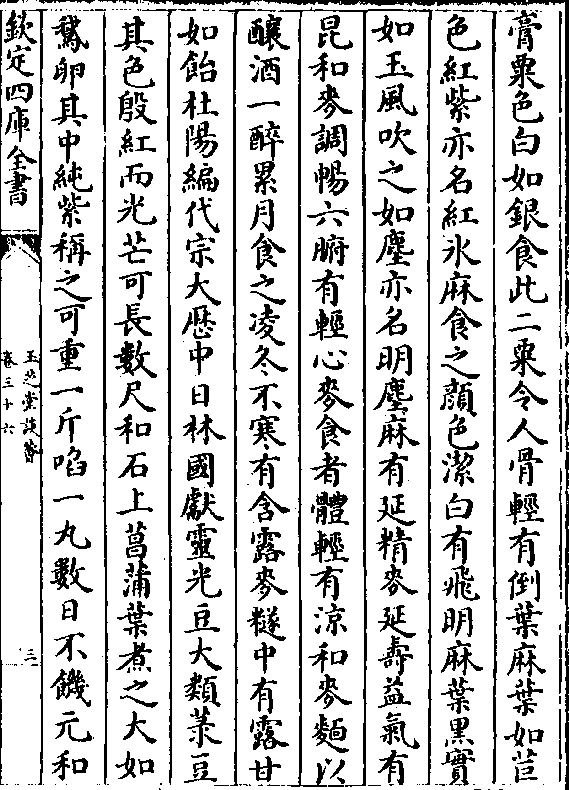 膏粟色白如銀食此二粟令人骨輕有倒葉麻葉如苣
色紅紫亦名紅氷麻食之顔色潔白有飛明麻葉黒實
如玉風吹之如塵亦名明塵麻有延精麥延壽益氣有
昆和麥調暢六腑有輕心麥食者體輕有涼和麥麵以
釀酒一醉累月食之凌冬不寒有含露麥䆳中有露甘
如飴杜陽編代宗大厯中日林國獻靈光豆大類菉豆
其色殷紅而光芒可長數尺和石上菖蒲葉煮之大如
鵞卵其中純紫稱之可重一斤啗一丸數日不饑元和
欽定四庫全書
玉芝堂談薈
卷三十六
三